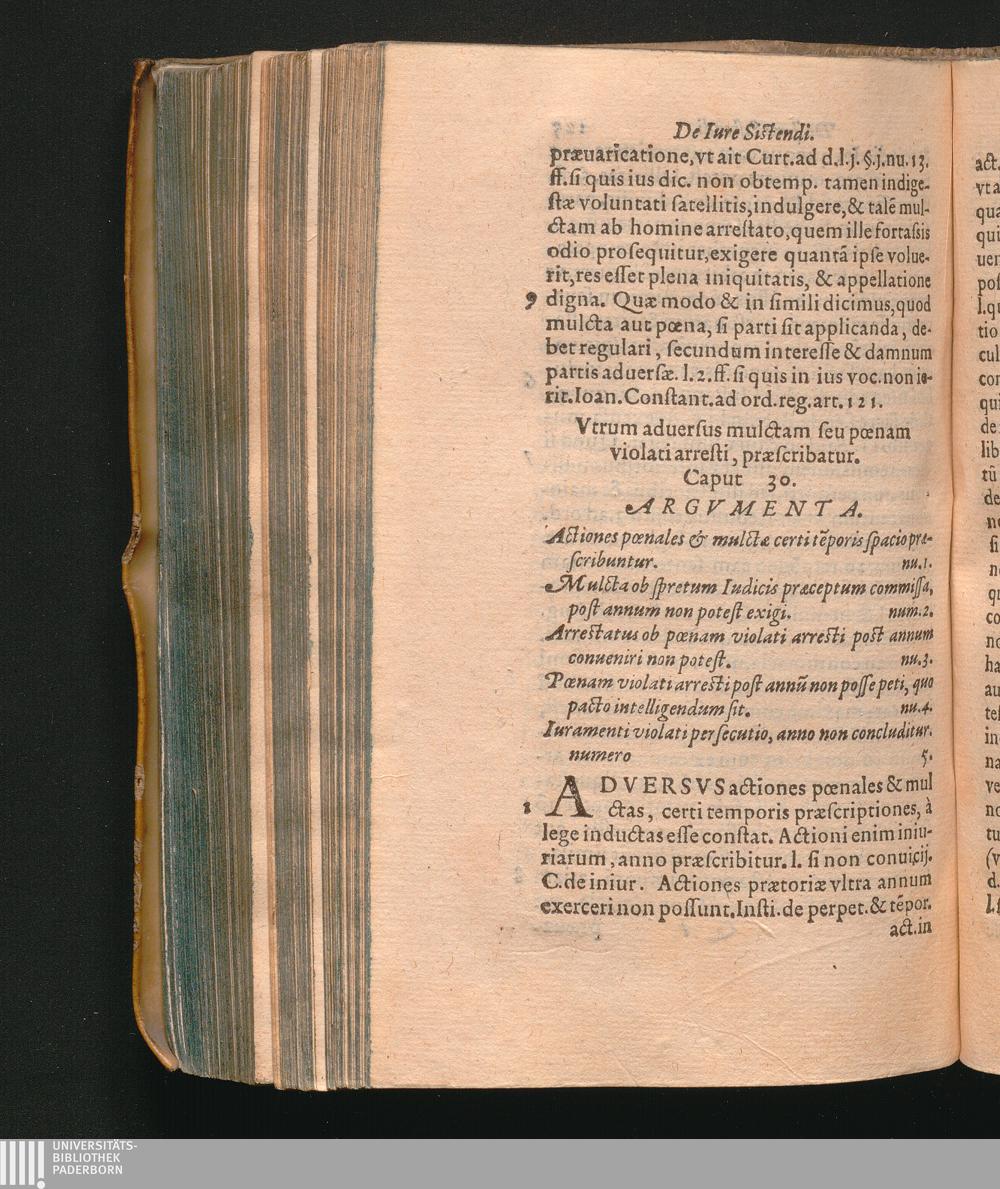 De Iure Sistendi.
præuaricatione, vt ait Curt. ad d.l.j. §.j.nu.13.
ff. si quis ius dic. non obtemp. tamen indige-
stæ voluntati satellitis, indulgere, & talē mul-
ctam ab homine arrestato, quem ille fortassis
odio prosequitur, exigere quantā ipse volue-
rit, res esset plena iniquitatis, & appellatione
9 digna. Quæ modo & in simili dicimus, quod
mulcta aut pœna, si parti sit applicanda, de-
bet regulari, secundum interesse & damnum
partis aduersæ. l.2.ff. si quis in ius voc. non ie-
rit. Ioan. Constant. ad ord. reg. art. 121.
Vtrum aduersus mulctam seu pœnam
violati arresti, præscribatur.
Caput 30.
ARGVMENTA.
Actiones pœnales & mulctæ certi tēporis spacio præ-
scribuntur. nu.1.
Mulcta ob spretum Iudicis præceptum commissa,
post annum non potest exigi. num.2.
Arrestatus ob pœnam violati arresti post annum
conueniri non potest. nu.3.
Pœnam violati arresti post annū non posse peti, quo
pacto intelligendum sit. nu.4.
Iuramenti violati persecutio, anno non concluditur.
numero 5.
1 ADVERSVS actiones pœnales & mul
ctas, certi temporis præscriptiones, à
lege inductas esse constat. Actioni enim iniu-
riarum, anno præscribitur. l. si non conuicij.
C. de iniur. Actiones prætoriæ vltra annum
exerceri non possunt. Insti. de perpet. & tēpor.
act. in
act.
vt a
qua
qui
uer
pos
l.qu
tio
cul
con
qui
de
lib
tū
de
ne
si
no
qu
co
no
ha
au
tes
in
na
ve
no
tu
(v
d.
l.s
UNIVERSITÄTS-
BIBLIOTHEK
PADERBORN